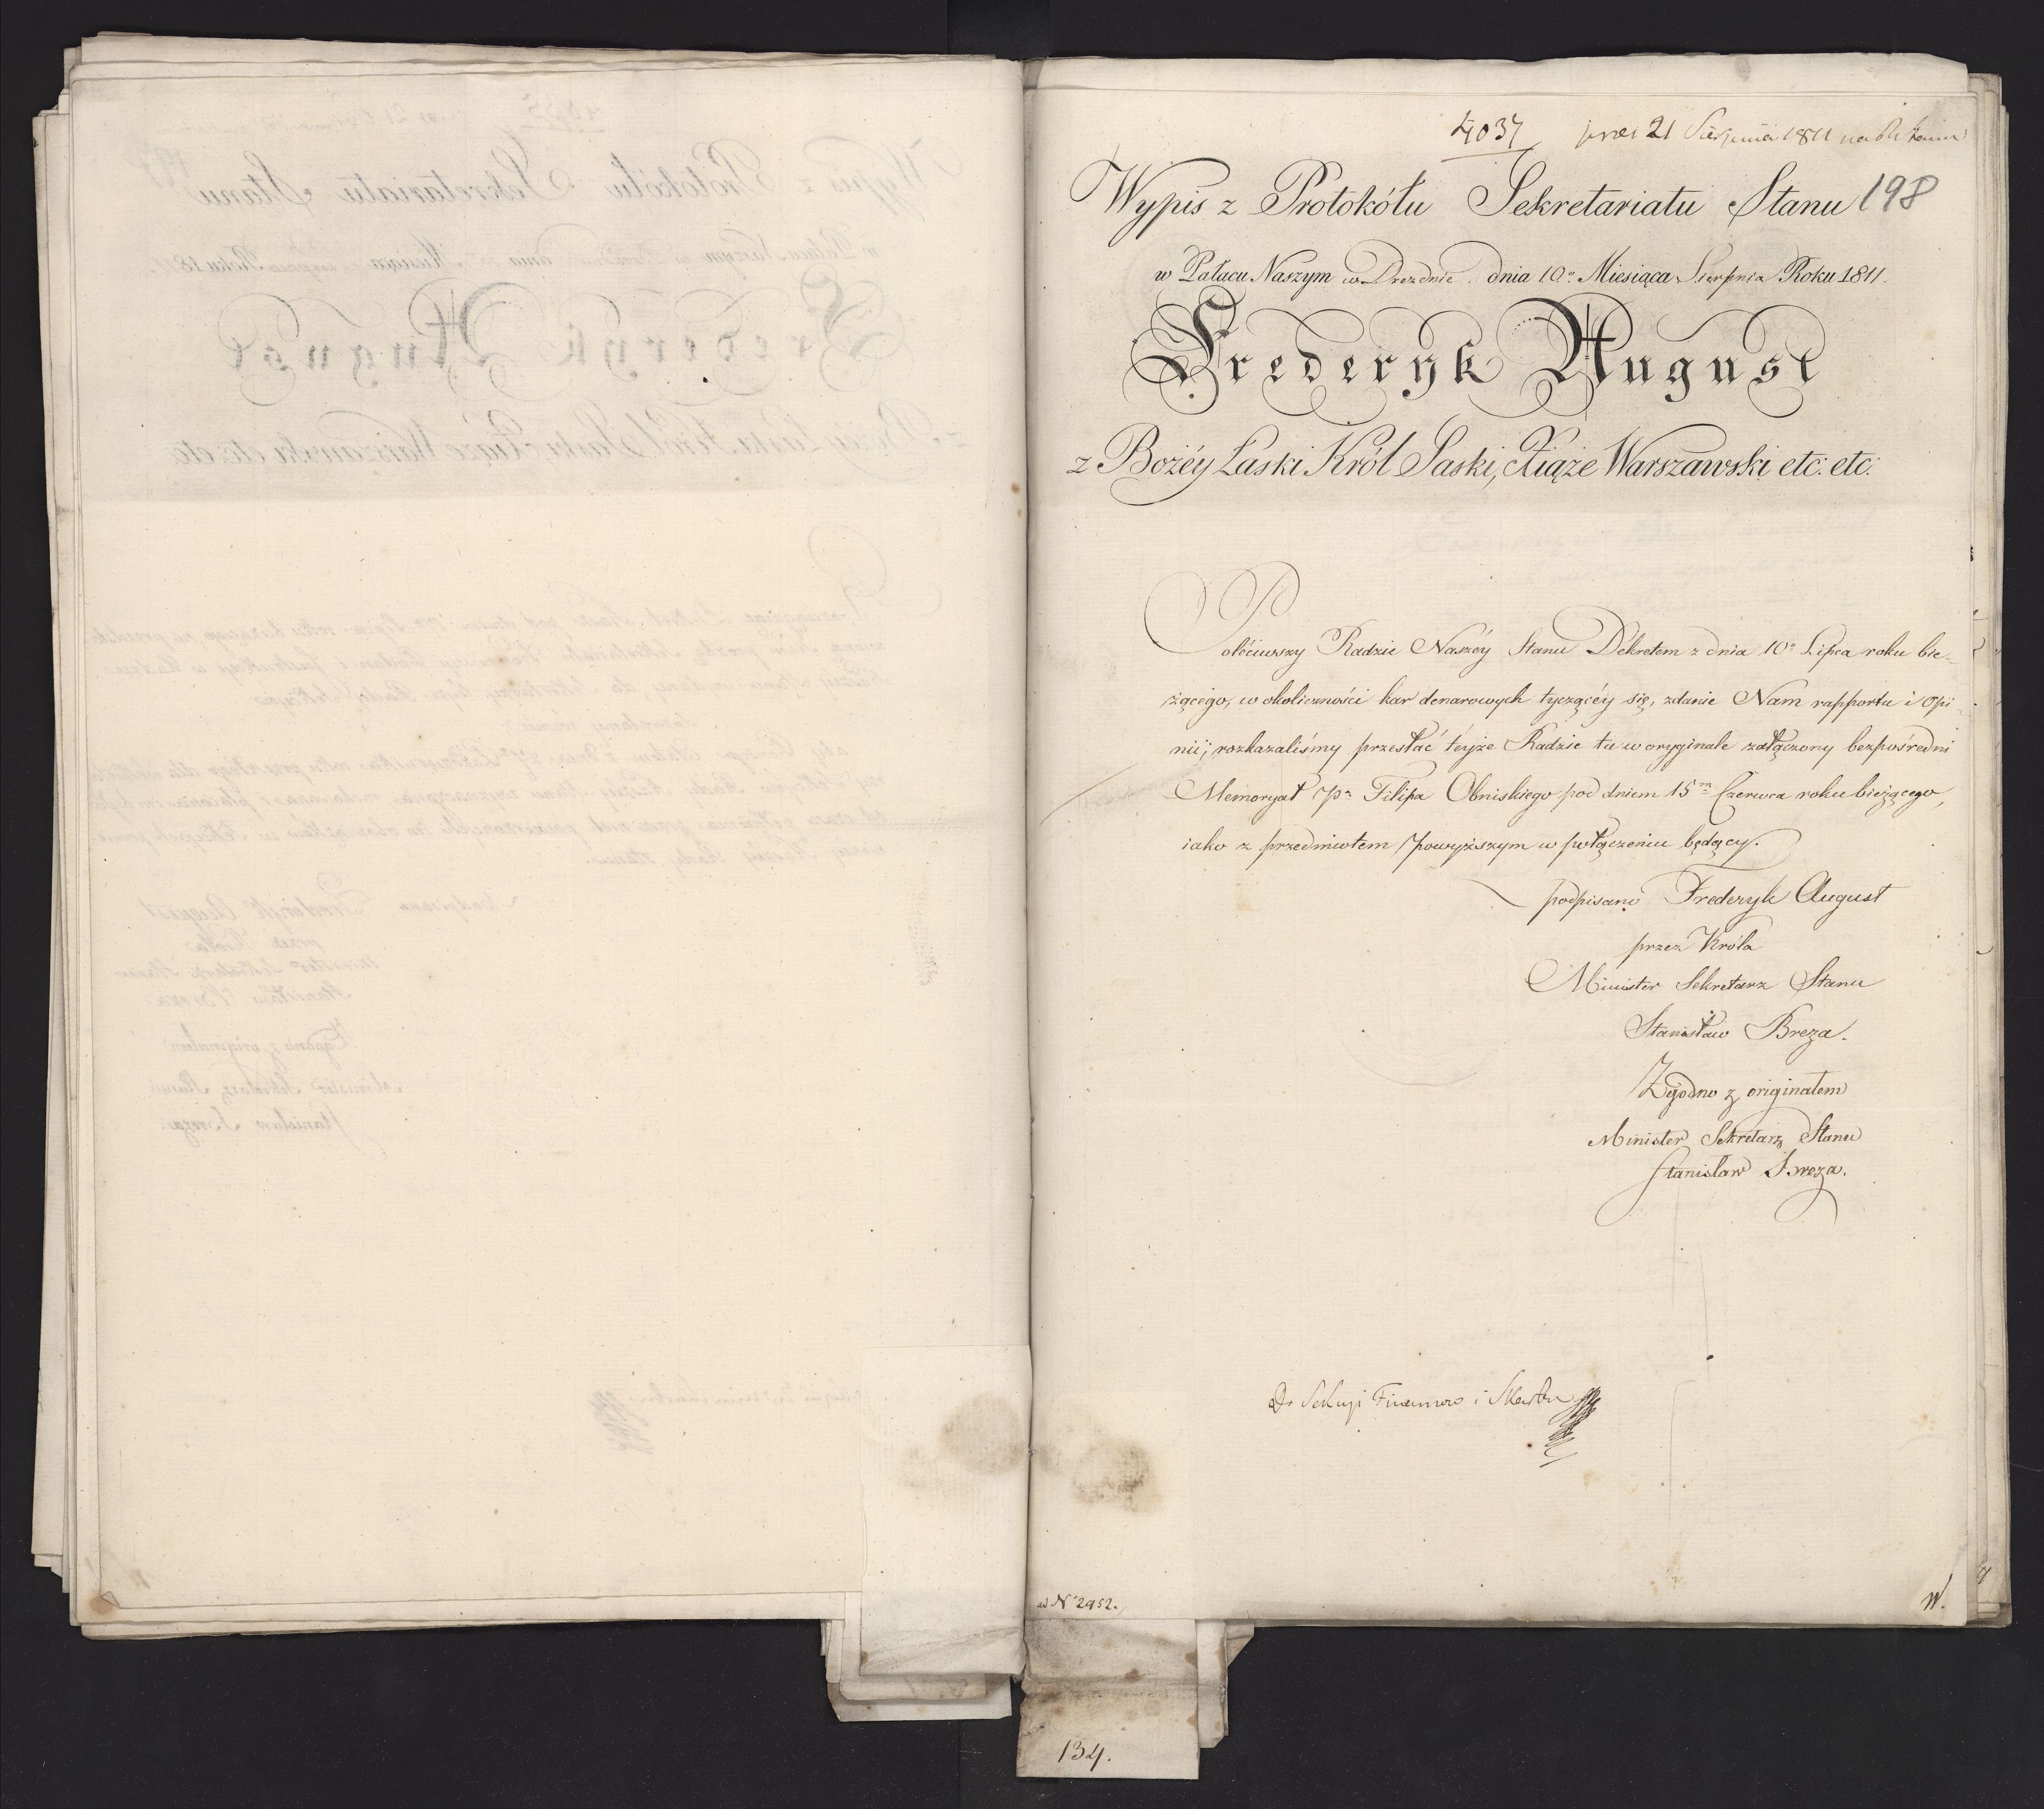 4037 prez 21 Sierpnia 1811 na
Wypis z Protokółu Sekretariatu Stanu 198
w Pałacu Naszym w Dreznie dnia 10º Miesiąca Sierpnia Roku 1811.
Frederyk August
z Bożéy Łaski Król Saski, Xiąże Warszawski etc: etc:
Poleciwszy Radzie Naszéy Stanu Dekretem z dnia 10º Lipca roku bie-
żącego, w okoliczności kar denarowych tyczącéy się, zdanie Nam rapportu i opi
nii; rozkazaliśmy przesłać téyże Radzie tu w oryginale załączony bezpośredni
Memoryał Pª Filipa Obniskiego pod dniem 15m Czerwca roku bieżącego,
iako z przedmiotem powyższym w połączeniu będący.
podpisano Frederyk August
przez Króla
Minister Sekretarz Stanu
Stanisław Breza.
Zgodno z originałem
Minister Sekretarz Stanu
Stanisław Breza.
Do Sekcyi Finansow i Skarbu
ad Nº 2952.
W.
134.